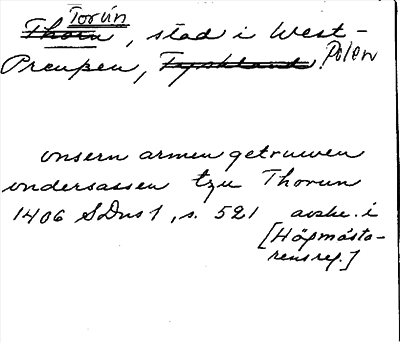 Torún
Thorn, stad i West-
Preuszen, Tyskland. Polen
vnsern armen getruwen
vndersassen tzu Thorun
1406 SDns 1, s. 521 avskr. i
[Högmästa-
rens reg.]